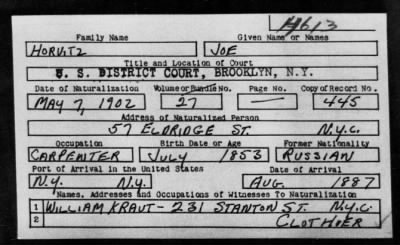 H613
Family Name Given Name or Names
HORVITZ JOE
Title and Location of Court
U. S. DISTRICT COURT, BROOKLYN, N.Y.
Date of Naturalization Volume or Bundle No. Page No. Copy of Record No.
MAY 7, 1902 27 — 445
Address of Naturalized Person
57 ELDRIDGE ST. N.Y.C.
Occupation Birth Date or Age Former Nationality
CARPENTER JULY 1853 RUSSIAN
Port of Arrival in the United States Date of Arrival
N.Y. N.Y. AUG. 1887
Names, Addresses and Occupations of Witnesses To Naturalization
1 WILLIAM KRAUT - 231 STANTON ST. N.Y.C.
2 CLOTHIER